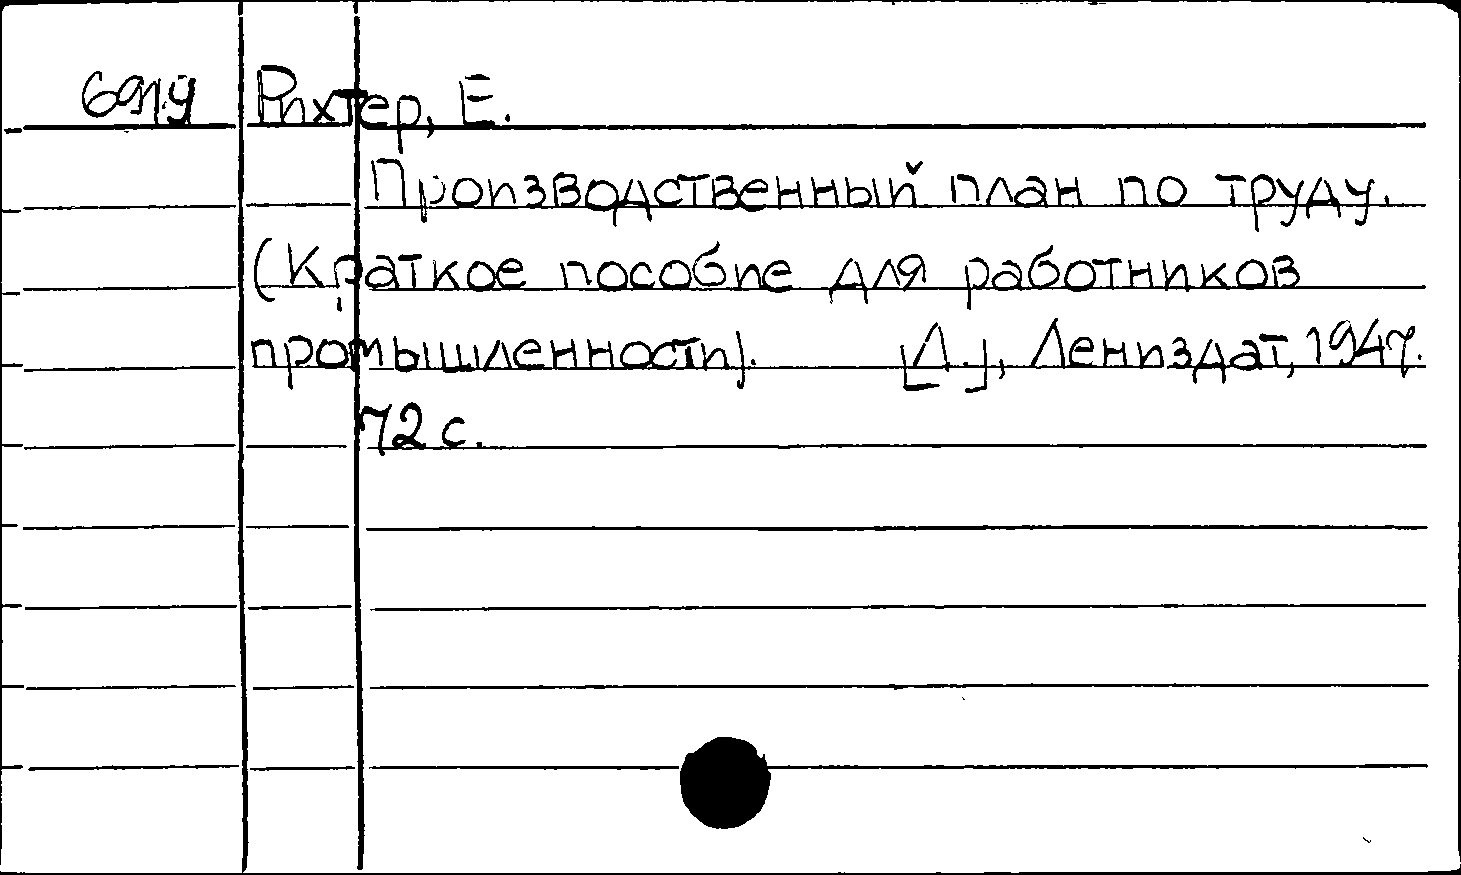 6919 Рихтер, Е.
Производственный план по труду.
(Краткое пособие для работников
промышленности). [Л.], Лениздат, 1947.
72 с.